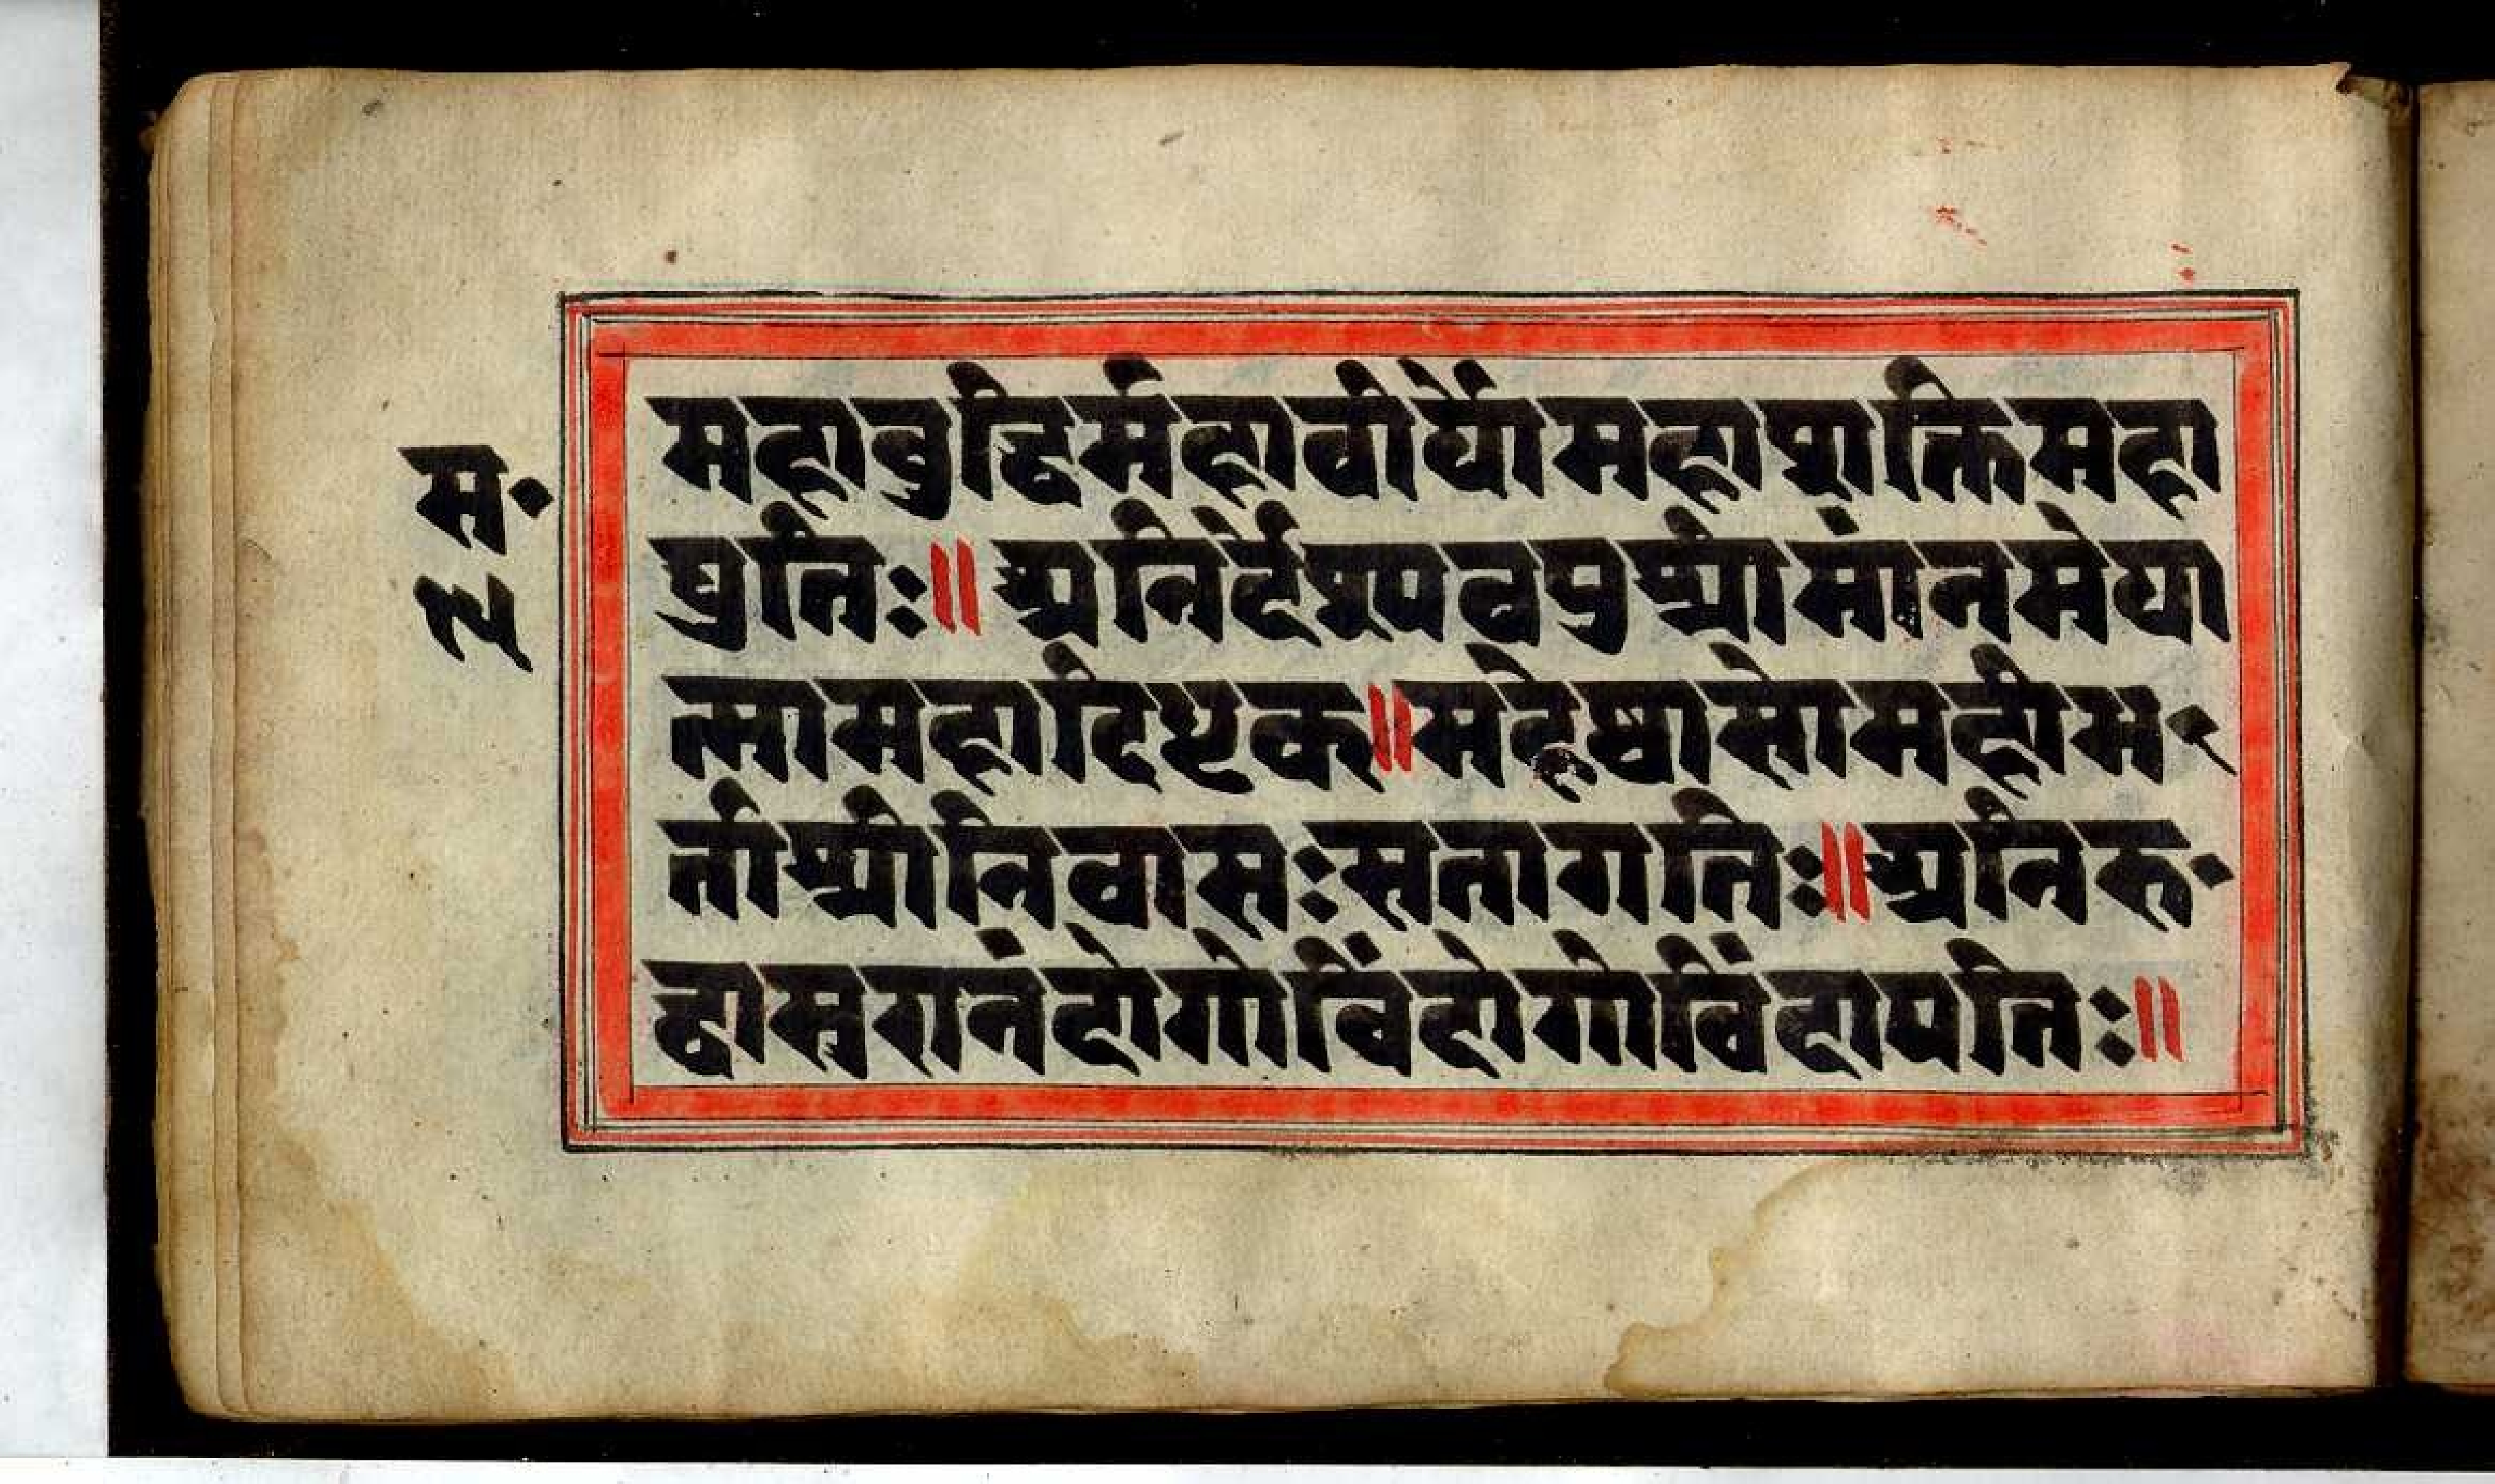 महाबुद्धिर्महावीर्यौमहाषाक्तिमहा
घुतिः॥अनिर्देश्पवपुश्रीमांनमेया
त्मामहादिध्टक॥महेष्वासोमहीभ
र्ताश्रीनिवासःसतागतिः॥अनिरु
द्धासुरानंदोगोविंदोगोविंदापतिः॥
स॰